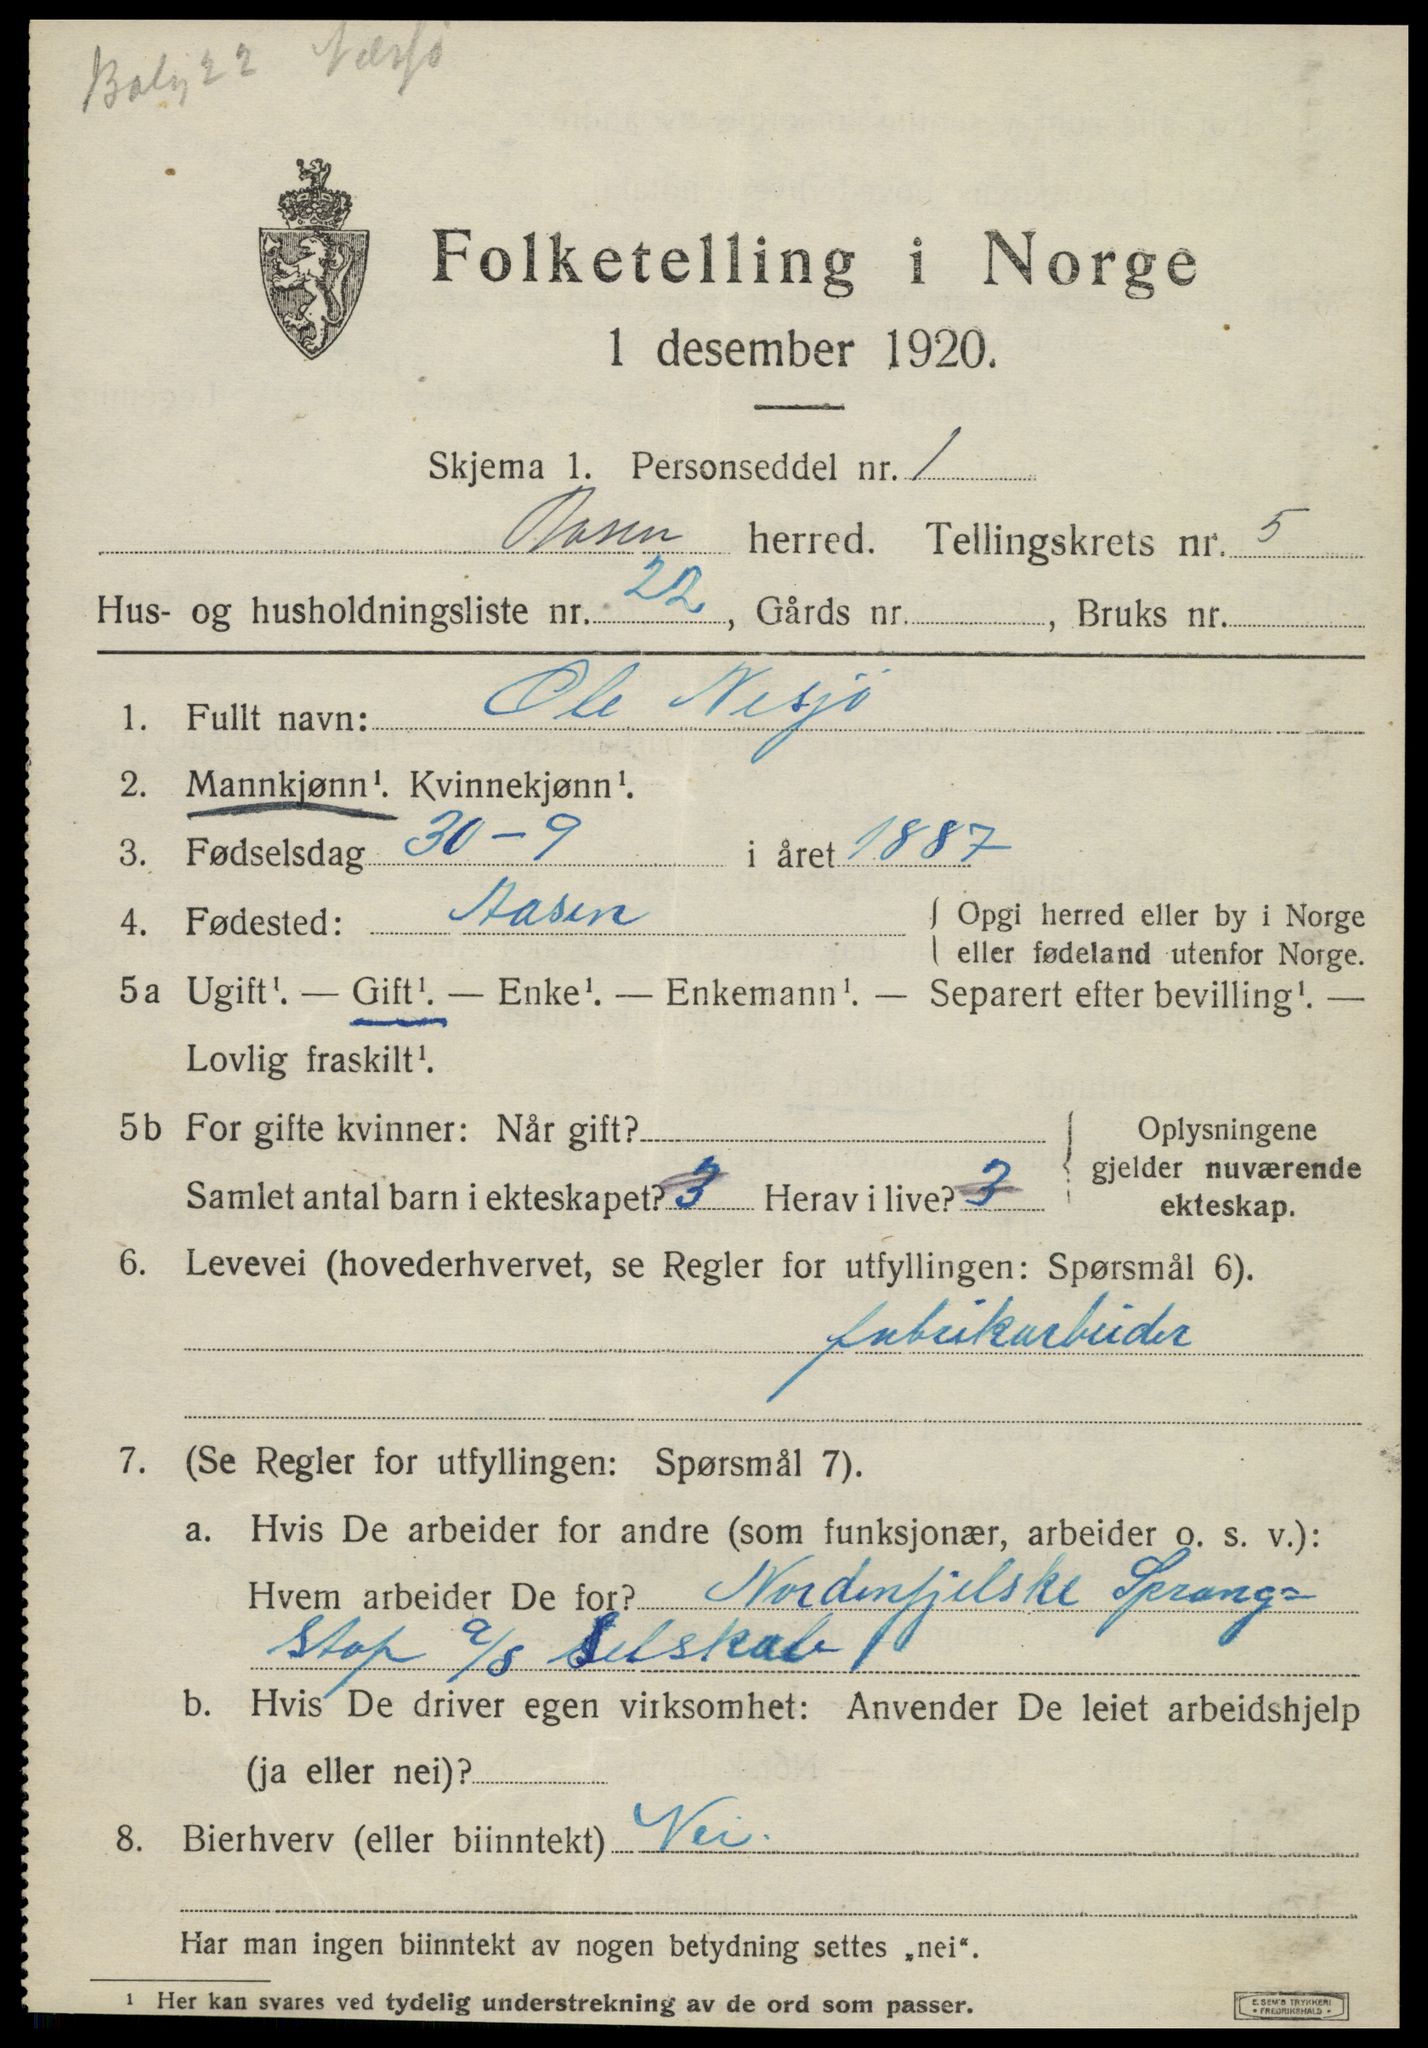 22 Nersjö
Folketelling i Norge
1 desember 1920.
Skjema 1. Personseddel nr. 1
Aasen herred. Tellingskrets nr. 5
Hus- og husholdningsliste nr. 22, Gårds nr. , Bruks nr.
1. Fullt navn: Ole Nesjö
2. Mannkjønn¹. Kvinnekjønn¹.
3. Fødselsdag 30-9 i året 1887
4. Fødested: Aasen { Opgi herred eller by i Norge
eller fødeland utenfor Norge.
5a Ugift¹. — Gift¹. — Enke¹. — Enkemann¹. — Separert efter bevilling¹. —
Lovlig fraskilt¹.
5b For gifte kvinner: Når gift? { Oplysningene
gjelder nuværende
ekteskap.
Samlet antal barn i ekteskapet? 3 Herav i live? 3
6. Levevei (hovederhvervet, se Regler for utfyllingen: Spørsmål 6).
fabrikarbeider
7. (Se Regler for utfyllingen: Spørsmål 7).
a. Hvis De arbeider for andre (som funksjonær, arbeider o. s. v.):
Hvem arbeider De for? Nordenfjelske Spræng=
stof a/s Selskab
b. Hvis De driver egen virksomhet: Anvender De leiet arbeidshjelp
(ja eller nei)?
8. Bierhverv (eller biinntekt) Nei.
Har man ingen biinntekt av nogen betydning settes „nei“.
¹ Her kan svares ved tydelig understrekning av de ord som passer.
E. SEM'S TRYKKERI
• FREDRIKSHALD •